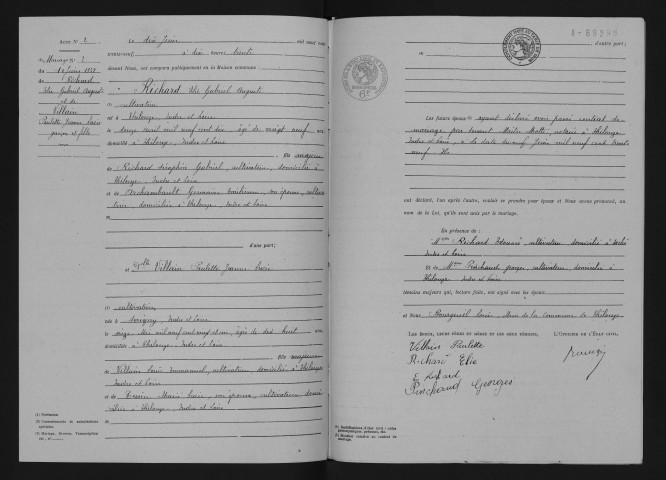 ACTE N° 2
Mariage N° 2
du 10 Juin 1939
Richard
Elie Gabriel Auguste
et de
Villain
Paulette Jeanne Lucie
garçon et fille
Le dix Juin mil neuf cent
trente-neuf à dix heures trente
devant Nous, ont comparu publiquement en la Maison commune
Richard Elie Gabriel Auguste
cultivateur
né à Thilouze, Indre et Loire
le douze avril mil neuf cent dix âgé de vingt neuf ans
domicilié à Thilouze, Indre et Loire
fils majeur
de Richard Séraphin Gabriel, cultivateur, domicilié à
Thilouze, Indre et Loire
et de Archambault Germaine Emilienne, son épouse, cultiva-
trice domiciliée à Thilouze, Indre et Loire
d'une part;
et Dlle Villain Paulette Jeanne Lucie
cultivatrice
née à Sorigny, Indre et Loire
le seize Mai mil neuf cent vingt et un, âgée de dix huit ans
domiciliée à Thilouze, Indre et Loire
fille mineure
de Villain Louis Emmanuel, cultivateur, domicilié à Thilouze
Indre et Loire
et de Marie Louise, son épouse, cultivatrice domici-
liée à Thilouze, Indre et Loire
d'autre part;
Les futurs époux ayant déclaré avoir passé contrat de
mariage par devant Maître notaire à Thilouze
Indre et Loire, à la date du neuf Juin mil neuf cent trente
neuf
ont déclaré, l'un après l'autre, vouloir se prendre pour époux et Nous avons prononcé, au
nom de la Loi, qu'ils sont unis par le mariage.
En présence de :
Richard Edouard cultivateur domicilié à
Indre et Loire
Et de Pinchaud Georges, cultivateur, domicilié à
Thilouze, Indre et Loire
témoins majeurs qui, lecture faite, ont signé avec les époux
et Nous Bourgueil Louis, Maire de la commune de Thilouze
LES ÉPOUX, L'OFFICIER DE L'ÉTAT CIVIL,
Villain Paulette
Richard Elie
E Richard
Pinchaud Georges